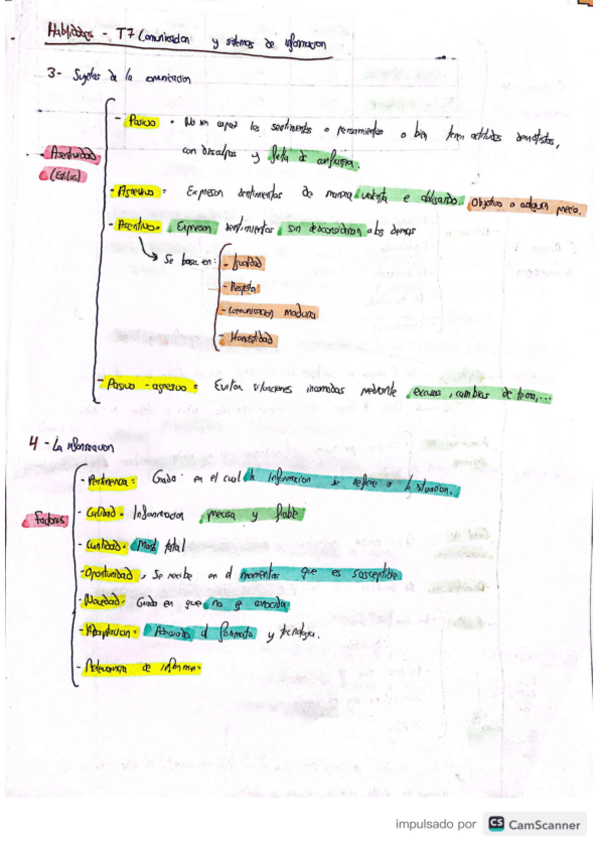 Habilidades - T7 Comunicacion y sistemas de informacion
3- Sujetos de la comunicacion
Asertividad
(Estilos)
- Pasivo : No son capaz los sentimientos o pensamientos o bien tienen actitudes derrotistas,
con disculpas y falta de confianza.
- Agresivo : Expresan sentimientos de manera violenta e obligando. Objetivo a cualquier precio.
- Asertivo : Expresan sentimientos sin desconsideran a los demas
Se basa en :
- Igualdad
- Respeto
- Comunicacion madura
- Honestidad
- Pasivo - agresivo : Evitan situaciones incomodas mediante excusas, cambios de tema,...
4 - La informacion
Factores
- Pertinencia : Grado : en el cual la informacion se refiere a la situacion.
- Calidad : Informacion precisa y fiable
- Cantidad : total
- Oportunidad , Se recibe en el momentos que es susceptible
- Novedad : Grado en que no es conocida
- Adaptacion : Adecuada al formato y tecnologia.
- Relevancia de
impulsado por CS CamScanner